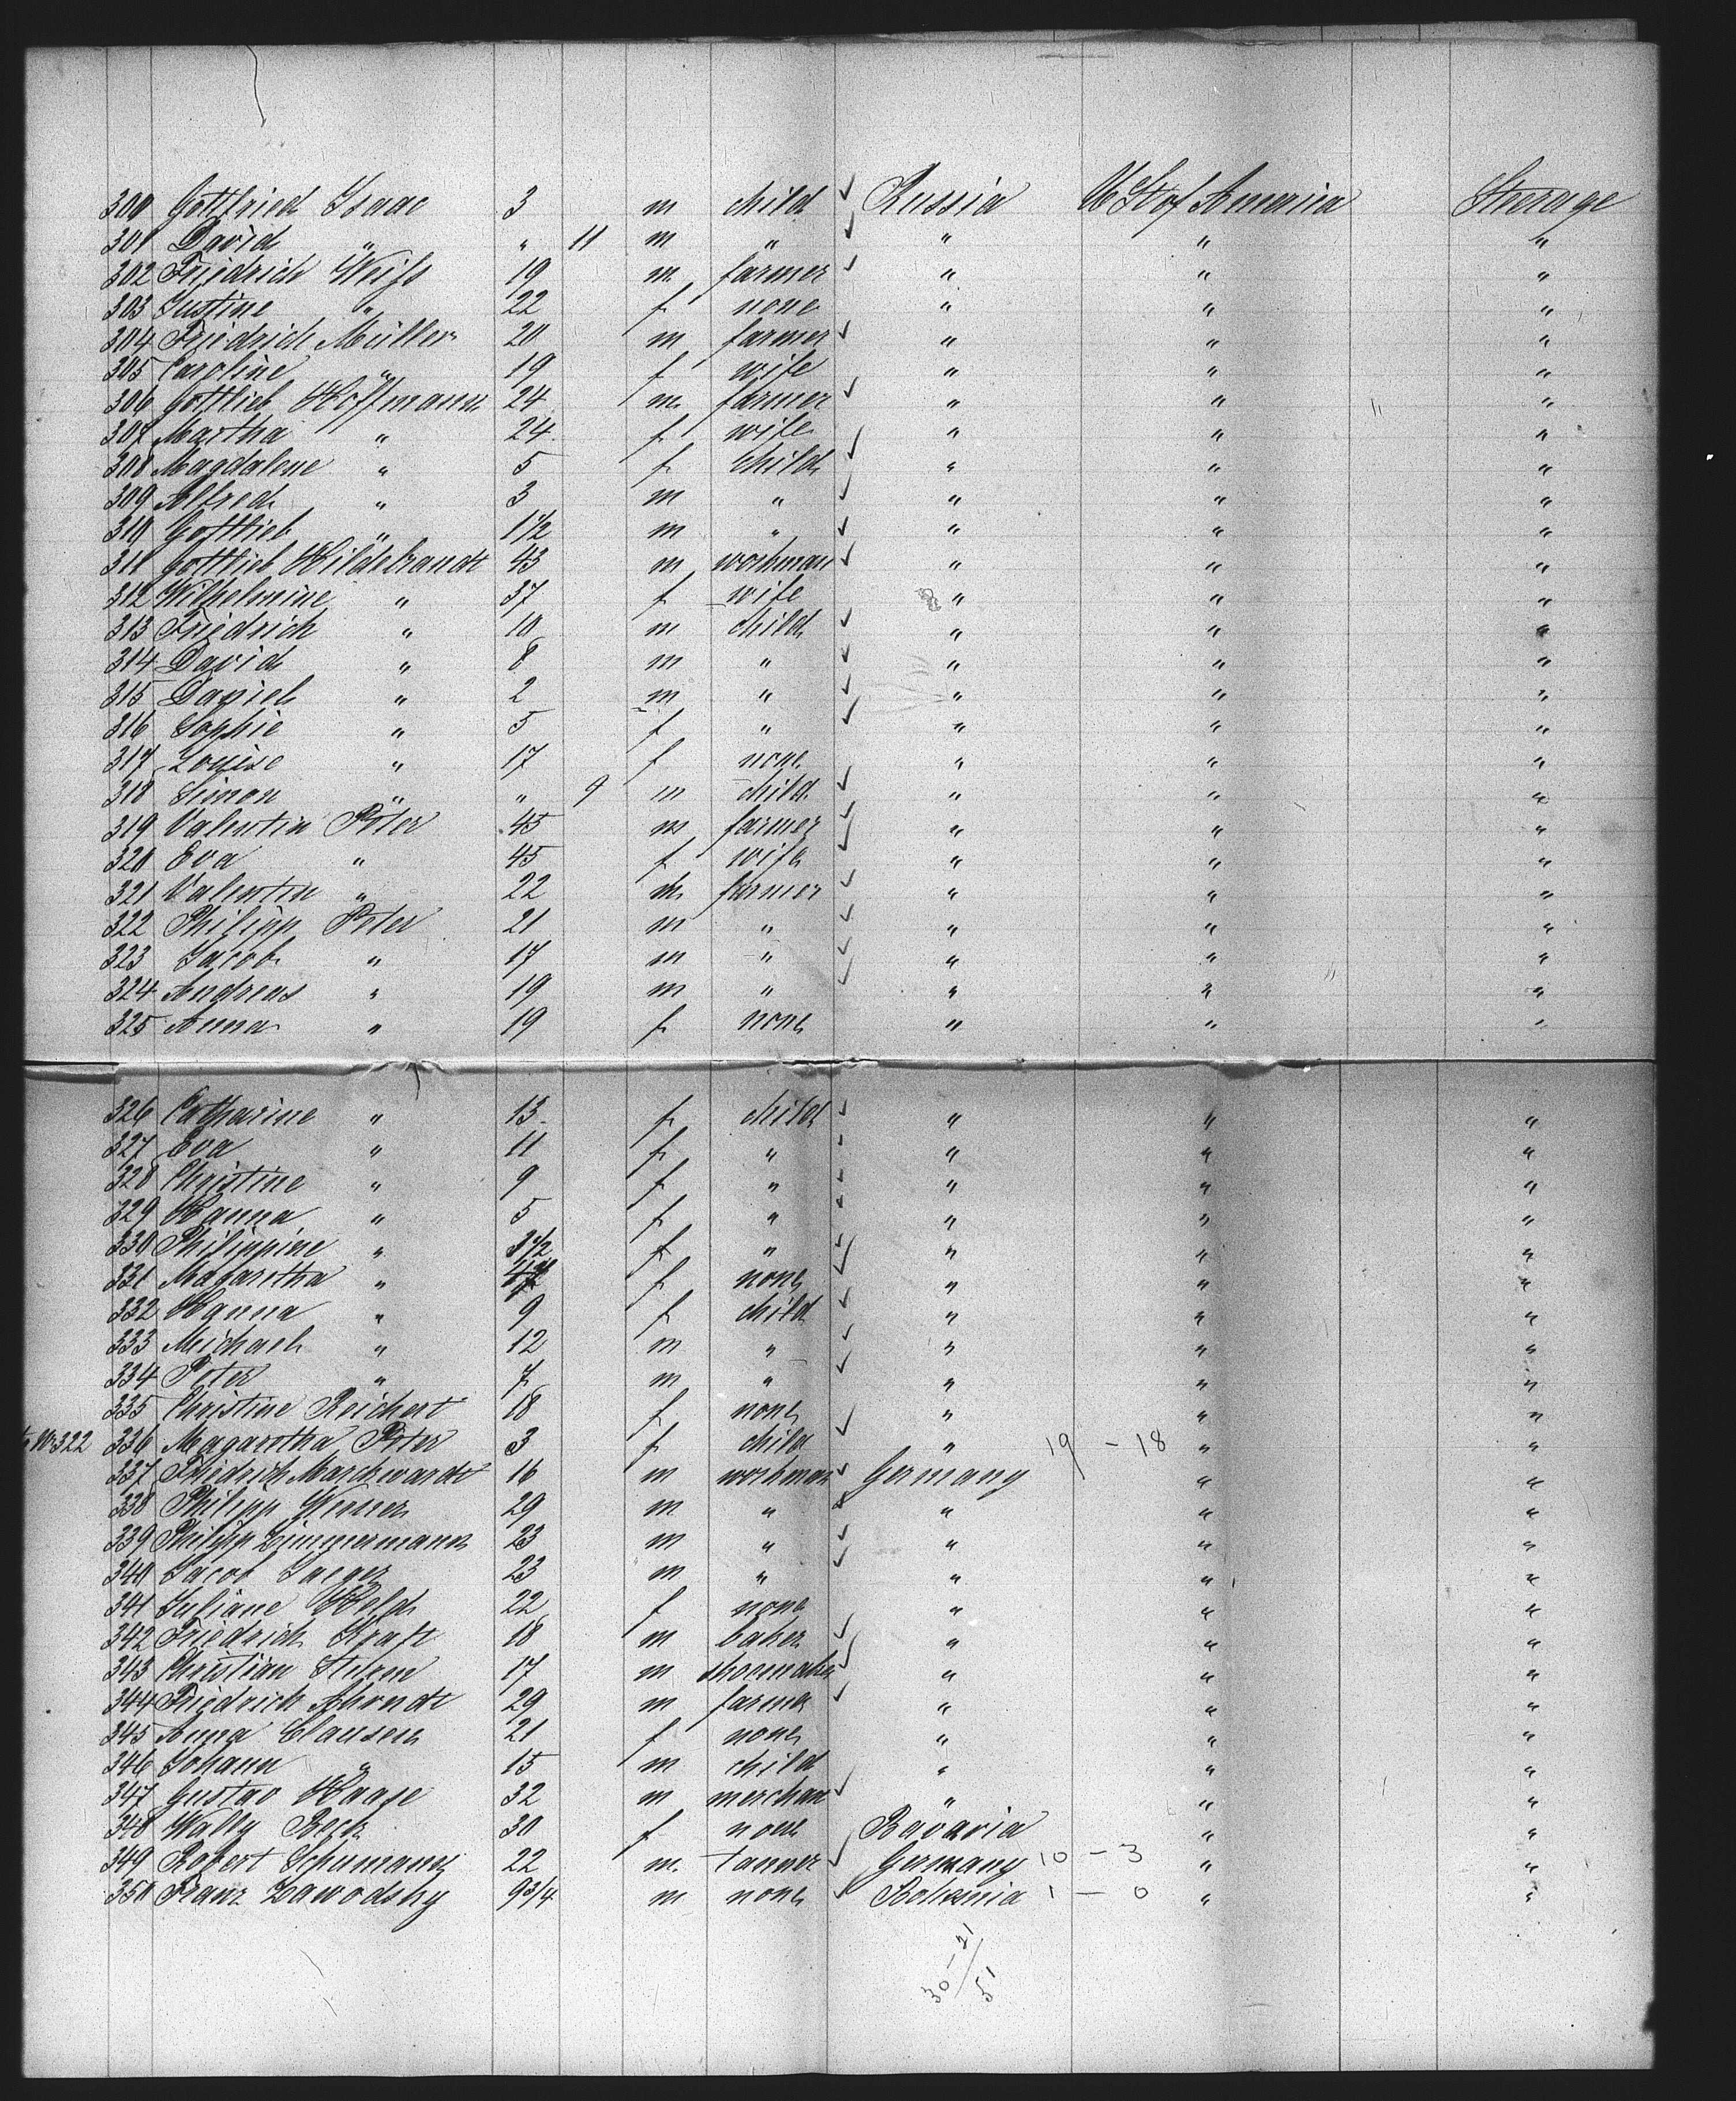 300 Gottfried Isaac 3 m child Russia U St of America Steerage
301 David " " 11 m " " " "
302 Friedrich Weiss 19 m. farmer " " "
303 Justine " 22 f none " " "
304 Friedrich Müller 20 m farmer " " "
305 Caroline " 19 f wife " " "
306 Gottlieb Hoffmann 24 m. farmer " " "
307 Martha " 24. f wife " " "
308 Magdalene " 5 f child " " "
309 Alfred " 3 m " " " "
310 Gottlieb " 1 1/2 m " " " "
311 Gottlieb Hildebrandt 43 m workman " " "
312 Wilhelmine " 37 f wife " " "
313 Friedrich " 10 m child " " "
314 David " 8 m " " " "
315 Daniel " 2 m " " " "
316 Sophie " 5 f " " " "
317 Louise " 17 f none " " "
318 Simon " " 9 m child " " "
319 Valentin Peter 45 m farmer " " "
320 Eva " 45 f wife " " "
321 Valentin " 22 m farmer " " "
322 Philipp Peter 21 m " " " "
323 Jacob " 17 m " " " "
324 Andreas " 19 m " " " "
325 Anna " 19 f none " " "
326 Catharine " 13 f child " " "
327 Eva " 11 f " " " "
328 Christine " 9 f " " " "
329 Hanna " 5 f " " " "
330 Philippine " f " " " "
331 Magaretha " f none " " "
332 Hanna " 9 f child " " "
333 Michael " 12 m " " " "
334 Peter " 7 m " " " "
335 Christine Reichert 18 f none " " "
No 322 336 Magaretha Peter 3 f child " 19 - 18 " "
337 Friedrich Marckwardt 16 m workman Germany " "
338 Philipp 29 m " " " "
339 Philipp Zimmermann 23 m " " " "
340 Jacob Jaeger 23 m " " " "
341 Juliane Held 22 f none " " "
342 Friedrich Kraft 18 m baker " " "
343 Christian 17 m shoemaker " " "
344 Friedrich Ahrndt 29 m farmer " " "
345 Anna Clausen 21 f none " " "
346 Johann " 15 m child " " "
347 Gustav Haase 32 m merchan " " "
348 Wally Beck 30 f none Bavaria " "
349 Robert Schumann 22 m. tanner Germany 10 - 3 " "
350 Franz Zawodsky 9 3/4 m none Bohemia 1 - 0 " "
30 - 21
51